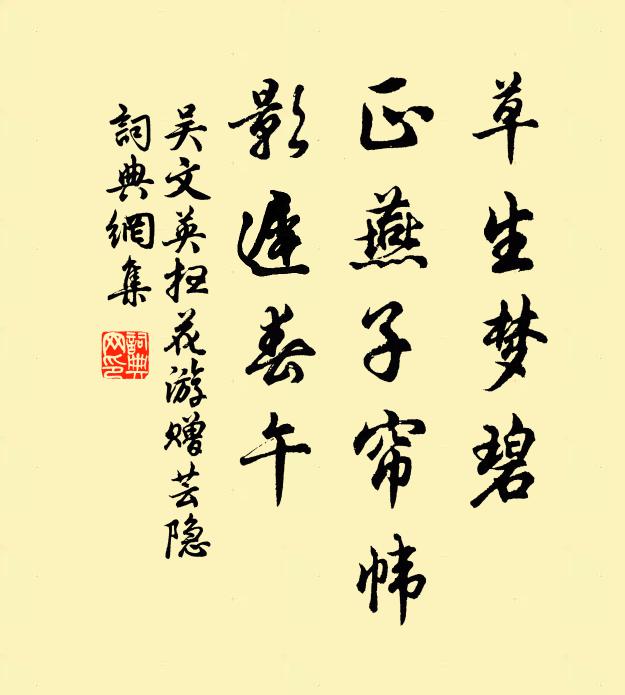 草生梦碧
正燕子帘帏
影迟春午
吴文英扫花游赠芸隐
詞典網集
詞典网印